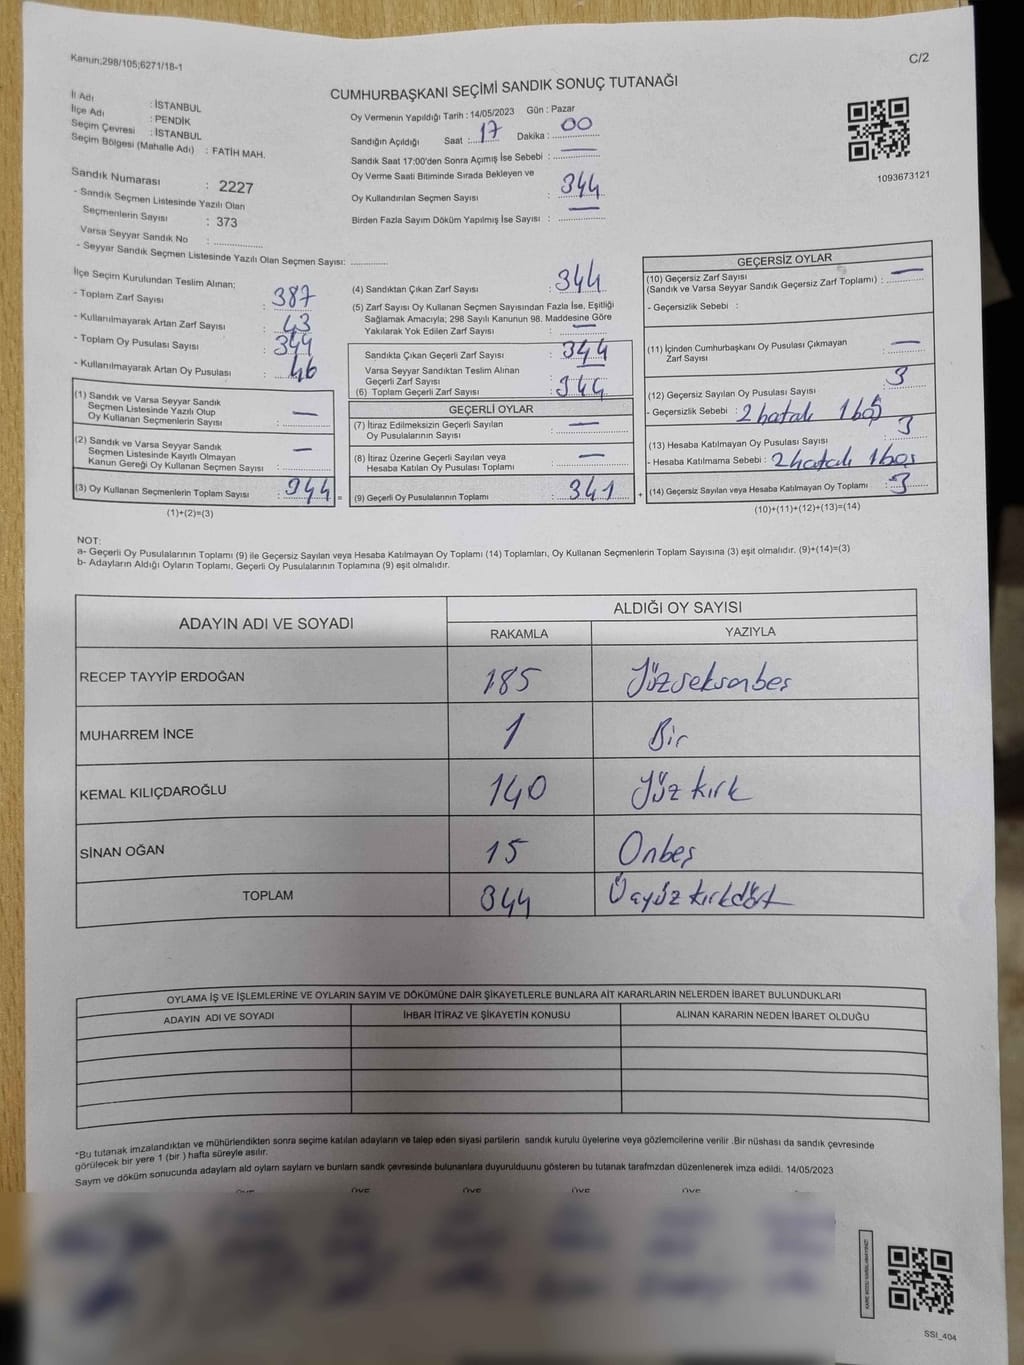 Kanun;298/105;6271/18-1
C/2
CUMHURBAŞKANI SEÇİMİ SANDIK SONUÇ TUTANAĞI
İl Adı : İSTANBUL
İlçe Adı : PENDİK
Seçim Çevresi : İSTANBUL
Seçim Bölgesi (Mahalle Adı) : FATİH MAH.
Oy Vermenin Yapıldığı Tarih : 14/05/2023 Gün : Pazar
Sandığın Açıldığı Saat : 17 Dakika : 00
Sandık Saat 17:00'den Sonra Açımış İse Sebebi : —
Oy Verme Saati Bitiminde Sırada Bekleyen ve
Oy Kullandırılan Seçmen Sayısı : 344
Birden Fazla Sayım Döküm Yapılmış İse Sayısı : —
1093673121
Sandık Numarası : 2227
- Sandık Seçmen Listesinde Yazılı Olan
Seçmenlerin Sayısı : 373
Varsa Seyyar Sandık No :
- Seyyar Sandık Seçmen Listesinde Yazılı Olan Seçmen Sayısı:
İlçe Seçim Kurulundan Teslim Alınan;
- Toplam Zarf Sayısı : 387
- Kullanılmayarak Artan Zarf Sayısı : 43
- Toplam Oy Pusulası Sayısı : 344
- Kullanılmayarak Artan Oy Pusulası : 46
(1) Sandık ve Varsa Seyyar Sandık
Seçmen Listesinde Yazılı Olup
Oy Kullanan Seçmenlerin Sayısı : —
(2) Sandık ve Varsa Seyyar Sandık
Seçmen Listesinde Kayıtlı Olmayan
Kanun Gereği Oy Kullanan Seçmen Sayısı : —
(3) Oy Kullanan Seçmenlerin Toplam Sayısı : 344 =
(1)+(2)=(3)
(4) Sandıktan Çıkan Zarf Sayısı : 344
(5) Zarf Sayısı Oy Kullanan Seçmen Sayısından Fazla İse, Eşitliği
Sağlamak Amacıyla; 298 Sayılı Kanunun 98. Maddesine Göre
Yakılarak Yok Edilen Zarf Sayısı : —
Sandıkta Çıkan Geçerli Zarf Sayısı : 344
Varsa Seyyar Sandıktan Teslim Alınan
Geçerli Zarf Sayısı : —
(6) Toplam Geçerli Zarf Sayısı : 344
GEÇERLİ OYLAR
(7) İtiraz Edilmeksizin Geçerli Sayılan
Oy Pusulalarının Sayısı : —
(8) İtiraz Üzerine Geçerli Sayılan veya
Hesaba Katılan Oy Pusulası Toplamı : —
(9) Geçerli Oy Pusulalarının Toplamı : 341 +
GEÇERSİZ OYLAR
(10) Geçersiz Zarf Sayısı
(Sandık ve Varsa Seyyar Sandık Geçersiz Zarf Toplamı) : —
- Geçersizlik Sebebi :
(11) İçinden Cumhurbaşkanı Oy Pusulası Çıkmayan
Zarf Sayısı : —
(12) Geçersiz Sayılan Oy Pusulası Sayısı : 3
- Geçersizlik Sebebi : 2 hatalı 1 boş
(13) Hesaba Katılmayan Oy Pusulası Sayısı : 3
- Hesaba Katılmama Sebebi : 2 hatalı 1 boş
(14) Geçersiz Sayılan veya Hesaba Katılmayan Oy Toplamı : 3
(10)+(11)+(12)+(13)=(14)
NOT:
a- Geçerli Oy Pusulalarının Toplamı (9) ile Geçersiz Sayılan veya Hesaba Katılmayan Oy Toplamı (14) Toplamları, Oy Kullanan Seçmenlerin Toplam Sayısına (3) eşit olmalıdır. (9)+(14)=(3)
b- Adayların Aldığı Oyların Toplamı, Geçerli Oy Pusulalarının Toplamına (9) eşit olmalıdır.
ADAYIN ADI VE SOYADI ALDIĞI OY SAYISI
RAKAMLA YAZIYLA
RECEP TAYYİP ERDOĞAN 185 Yüzseksenbeş
MUHARREM İNCE 1 Bir
KEMAL KILIÇDAROĞLU 140 Yüz kırk
SİNAN OĞAN 15 Onbeş
TOPLAM 344 Üçyüz kırkdört
OYLAMA İŞ VE İŞLEMLERİNE VE OYLARIN SAYIM VE DÖKÜMÜNE DAİR ŞİKAYETLERLE BUNLARA AİT KARARLARIN NELERDEN İBARET BULUNDUKLARI
ADAYIN ADI VE SOYADI İHBAR İTİRAZ VE ŞİKAYETİN KONUSU ALINAN KARARIN NEDEN İBARET OLDUĞU
*Bu tutanak imzalandıktan ve mühürlendikten sonra seçime katılan adayların ve talep eden siyasi partilerin sandık kurulu üyelerine veya gözlemcilerine verilir .Bir nüshası da sandık çevresinde
görülecek bir yere 1 (bir ) hafta süreyle asılır.
Sayım ve döküm sonucunda adayların ald oyların sayların ve bunların sandk çevresinde bulunanlara duyurulduunu gösteren bu tutanak tarafmzdan düzenlenerek imza edildi. 14/05/2023
ÜYE ÜYE ÜYE ÜYE ÜYE
SSI_404